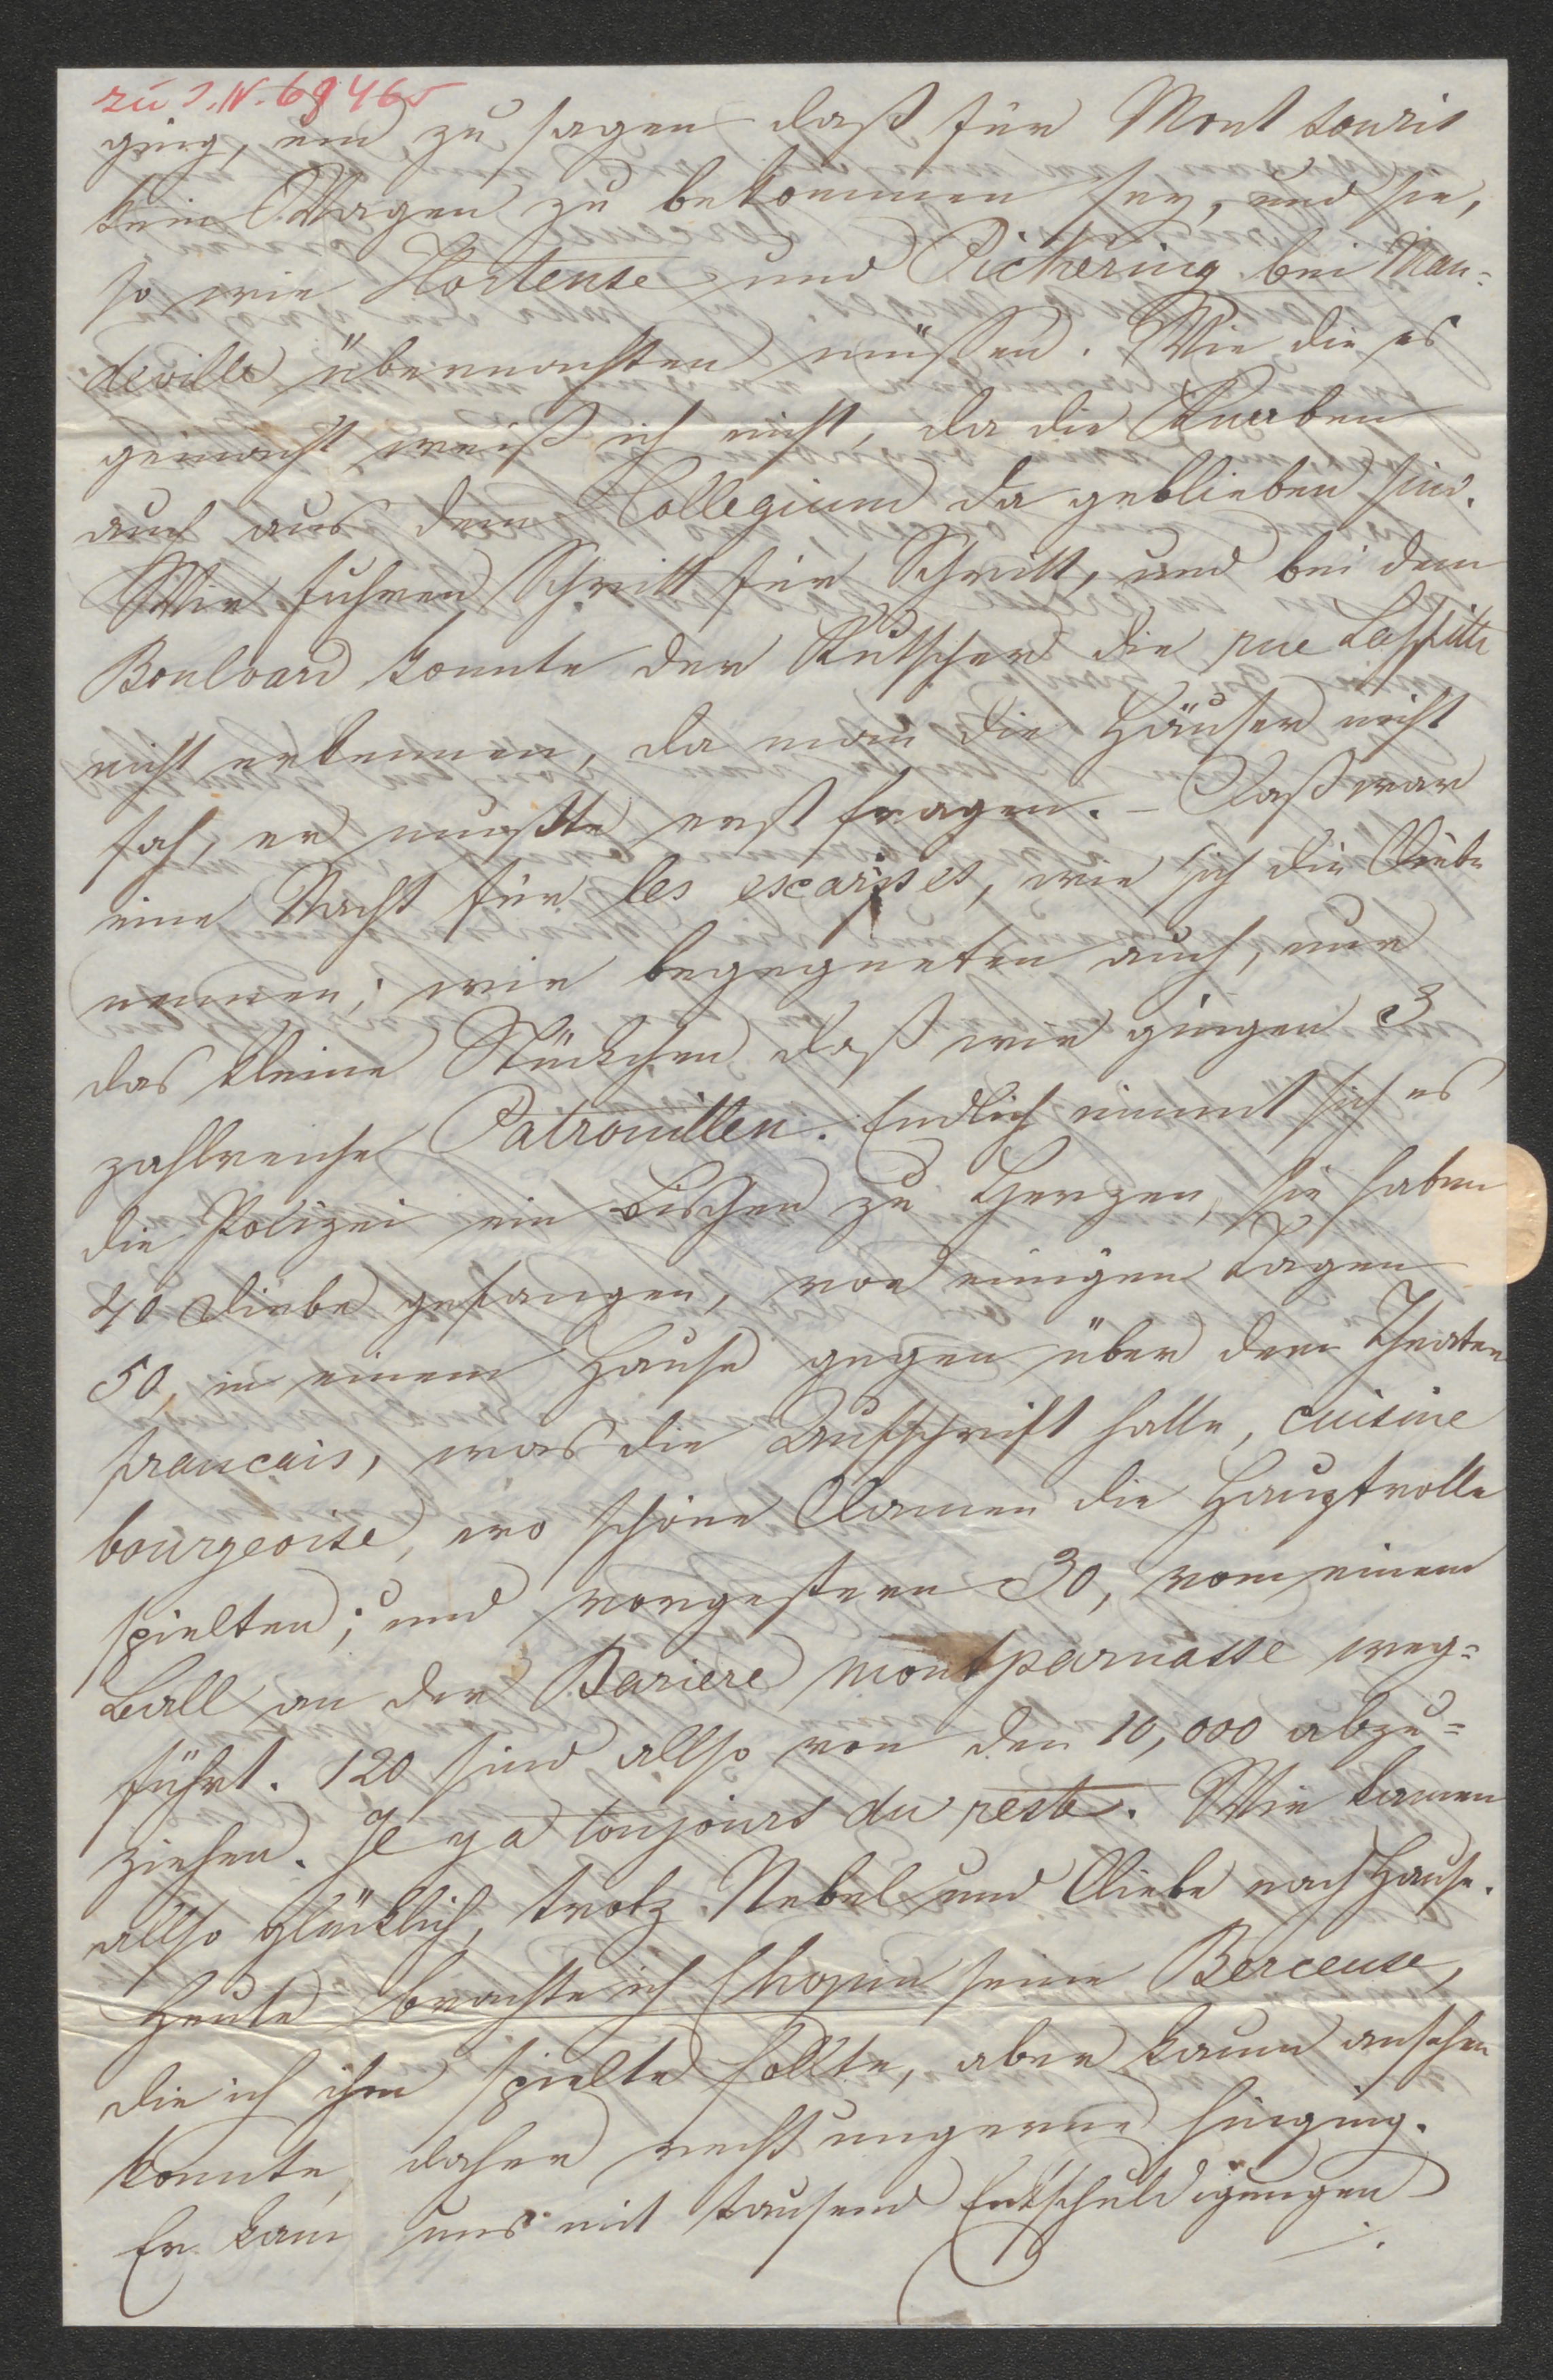 zu I.N. 69465
ging, um zu sagen daß für Mont souris
kein Wagen zu bekommen sey, und sie,
so wie Hortense und Pickering bei Man=
deville übernachten müßen. Wie die es
gemacht weiß ich nicht, da die Knaben
auch aus dem Collegium da geblieben sind.
Wir fuhren Schritt für Schritt, und bei dem
Boulvard konnte der Kutscher die rue Laffitte
nicht erkennen, da man die Häuser nicht
sah, er mußte erst fragen. – Daß war
eine Nacht für les escarpes, wie sich die Diebe
nennen; wir begegneten auch, nur
das kleine Stückchen daß wir gingen 3
zahlreiche Patrouillen. Endlich nimmt sich es
die Polizei ein bischen zu Herzen, sie haben
40 Diebe gefangen, vor einigen Tagen
50, in einem Hause gegen über dem Theater
francais, was die Aufschrift hatte, cuisine
bourgeoise, wo schöne Damen die Hauptrolle
spielten; und vorgestern 30, vom einem
Ball an der Bariere montparnasse weg=
führt. 120 sind allso von den 10,000 abzu=
ziehen. Il y a toujours du reste. Wir kamen
allso glücklich, trotz Nebel und Diebe nach Hause.
Heute brachte ich Chopin seine Berceuse,
die ich ihm spielte sollte, aber kaum ansehen
konnte, daher recht ungerne hinging.
Er kam uns mit tausend Entschuldigungen